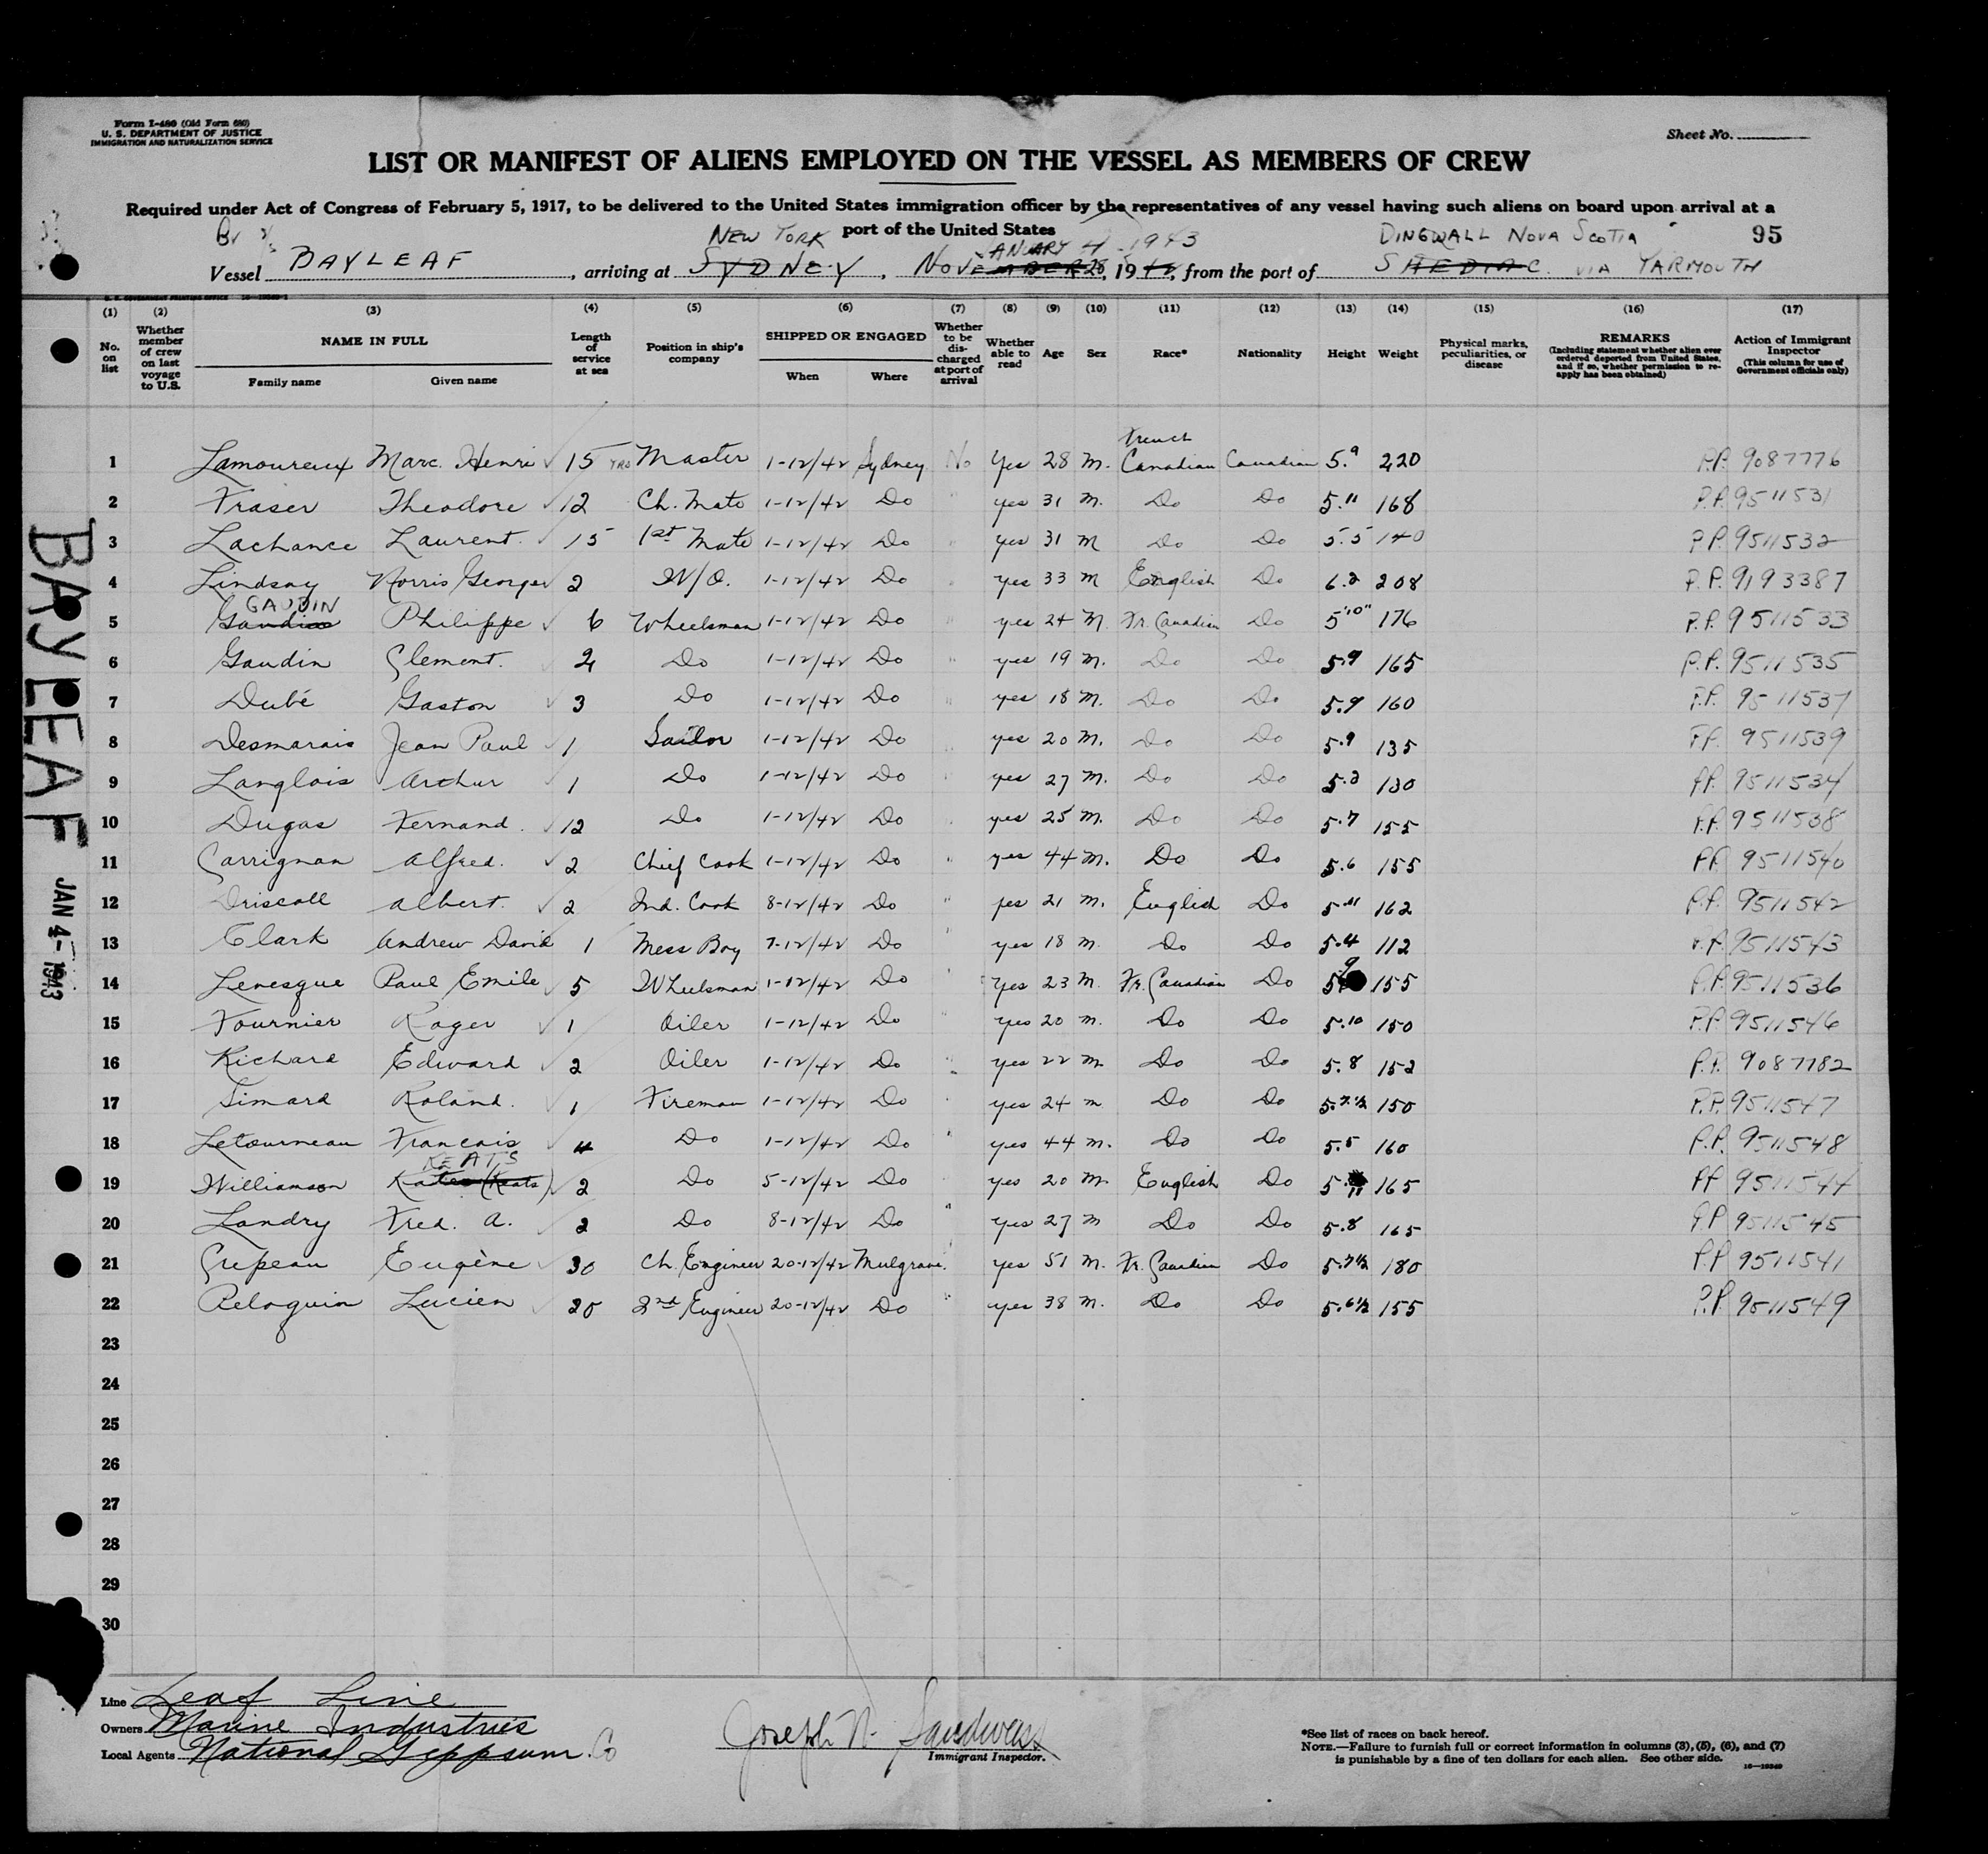 Form I-480 (Old Form 680)
U. S. DEPARTMENT OF JUSTICE
IMMIGRATION AND NATURALIZATION SERVICE
Sheet No.
LIST OR MANIFEST OF ALIENS EMPLOYED ON THE VESSEL AS MEMBERS OF CREW
Required under Act of Congress of February 5, 1917, to be delivered to the United States immigration officer by the representatives of any vessel having such aliens on board upon arrival at a
port of the United States
NEW YORK JANUARY 4 1943 DINGWALL NOVA SCOTIA 95
Vessel BAYLEAF, arriving at SYDNEY, NOVEMBER 28, 1942, from the port of SHEDIAC VIA YARMOUTH
(1) (2) (3) (4) (5) (6) (7) (8) (9) (10) (11) (12) (13) (14) (15) (16) (17)
No. on list
Whether member of crew on last voyage to U.S.
NAME IN FULL
Family name Given name
Length of service at sea
Position in ship's company
SHIPPED OR ENGAGED
When Where
Whether to be discharged at port of arrival
Whether able to read
Age
Sex
Race*
Nationality
Height
Weight
Physical marks, peculiarities, or disease
REMARKS
(Including statement whether alien ever ordered deported from United States, and if so, whether permission to reapply has been obtained)
Action of Immigrant Inspector
(This column for use of Government officials only)
1 Lamoureux Marc. Henri 15 YRS Master 1-12/42 Sydney No Yes 28 M. French Canadian Canadian 5.9 220 P.P. 9087776
2 Fraser Theodore 12 Ch. Mate 1-12/42 Do " yes 31 M. Do Do 5.11 168 P.P. 9511531
3 Lachance Laurent. 15 1st Mate 1-12/42 Do " yes 31 M Do Do 5.5 140 P.P. 9511532
4 Lindsay Norris George 2 W/O. 1-12/42 Do " yes 33 M English Do 6.2 208 P.P. 9193387
5 GAUDIN Philippe 6 Wheelsman 1-12/42 Do " yes 24 M. Fr. Canadian Do 5'10" 176 P.P. 9511533
6 Gaudin Clement. 2 Do 1-12/42 Do " yes 19 M. Do Do 5.9 165 P.P. 9511535
7 Dubé Gaston 3 Do 1-12/42 Do " yes 18 M. Do Do 5.9 160 P.P. 9511537
8 Desmarais Jean Paul 1 Sailor 1-12/42 Do " yes 20 M. Do Do 5.9 135 P.P. 9511539
9 Langlois Arthur 1 Do 1-12/42 Do yes 27 M. Do Do 5.3 130 P.P. 9511534
10 Dugas Fernand. 12 Do 1-12/42 Do yes 25 M. Do Do 5.7 155 P.P. 9511538
11 Carrignan Alfred. 2 Chief Cook 1-12/42 Do " yes 44 M. Do Do 5.6 155 P.P. 9511540
12 Driscoll Albert. 2 2nd. Cook 8-12/42 Do " yes 21 M. English Do 5.11 162 P.P. 9511542
13 Clark Andrew David 1 Mess Boy 7-12/42 Do " yes 18 M. Do Do 5.4 112 P.P. 9511543
14 Levesque Paul Emile 5 Wheelsman 1-12/42 Do " Yes 23 M. Fr. Canadian Do 5 9 155 P.P. 9511536
15 Fournier Roger 1 Oiler 1-12/42 Do " yes 20 M. Do Do 5.10 150 P.P. 9511546
16 Richard Edward 2 Oiler 1-12/42 Do " yes 22 M Do Do 5.8 152 P.P. 9087782
17 Simard Roland. 1 Fireman 1-12/42 Do " yes 24 M Do Do 5.7½ 150 P.P. 9511547
18 Letourneau Francois 4 Do 1-12/42 Do " yes 44 M. Do Do 5.5 160 P.P. 9511548
19 Williamson KEATS Kates (Keats) 2 Do 5-12/42 Do " yes 20 M. English Do 5.11 165 P.P. 9511544
20 Landry Fred. A. 2 Do 8-12/42 Do " yes 27 M Do Do 5.8 165 P.P. 9511545
21 Crepeau Eugène 30 Ch. Engineer 20-12/42 Mulgrave. yes 51 M. Fr. Canadian Do 5.7½ 180 P.P. 9511541
22 Peloquin Lucien 20 2nd Engineer 20-12/42 Do " yes 38 M. Do Do 5.6½ 155 P.P. 9511549
23
24
25
26
27
28
29
30
BAYLEAF JAN 4-1943
Line Leaf Line
Owners Marine Industries
Local Agents National Gyppsum. Co
Joseph N.
Immigrant Inspector.
*See list of races on back hereof.
NOTE.—Failure to furnish full or correct information in columns (3), (5), (6), and (7)
is punishable by a fine of ten dollars for each alien. See other side.